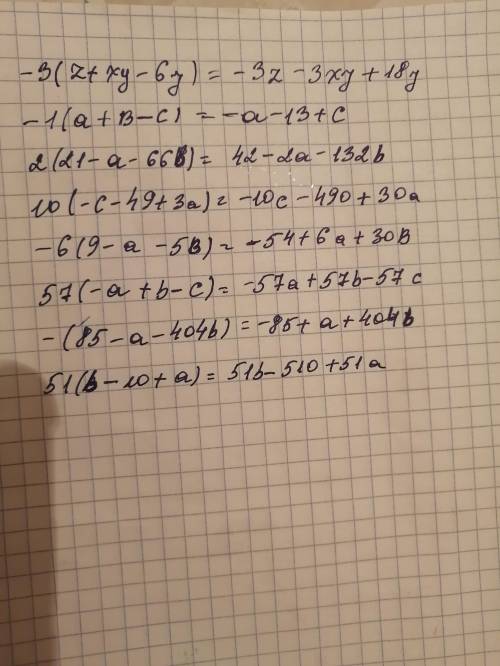 -3(z+xy-6y) = -3z-3xy+18y
-1(a+B-c) = -a-13+c
2(21-a-66b) = 42-2a-132b
10(-c-49+3a) = -10c-490+30a
-6(9-a-5B) = -54+6a+30B
57(-a+b-c) = -57a+57b-57c
-(85-a-404b) = -85+a+404b
51(b-10+a) = 51b-510+51a